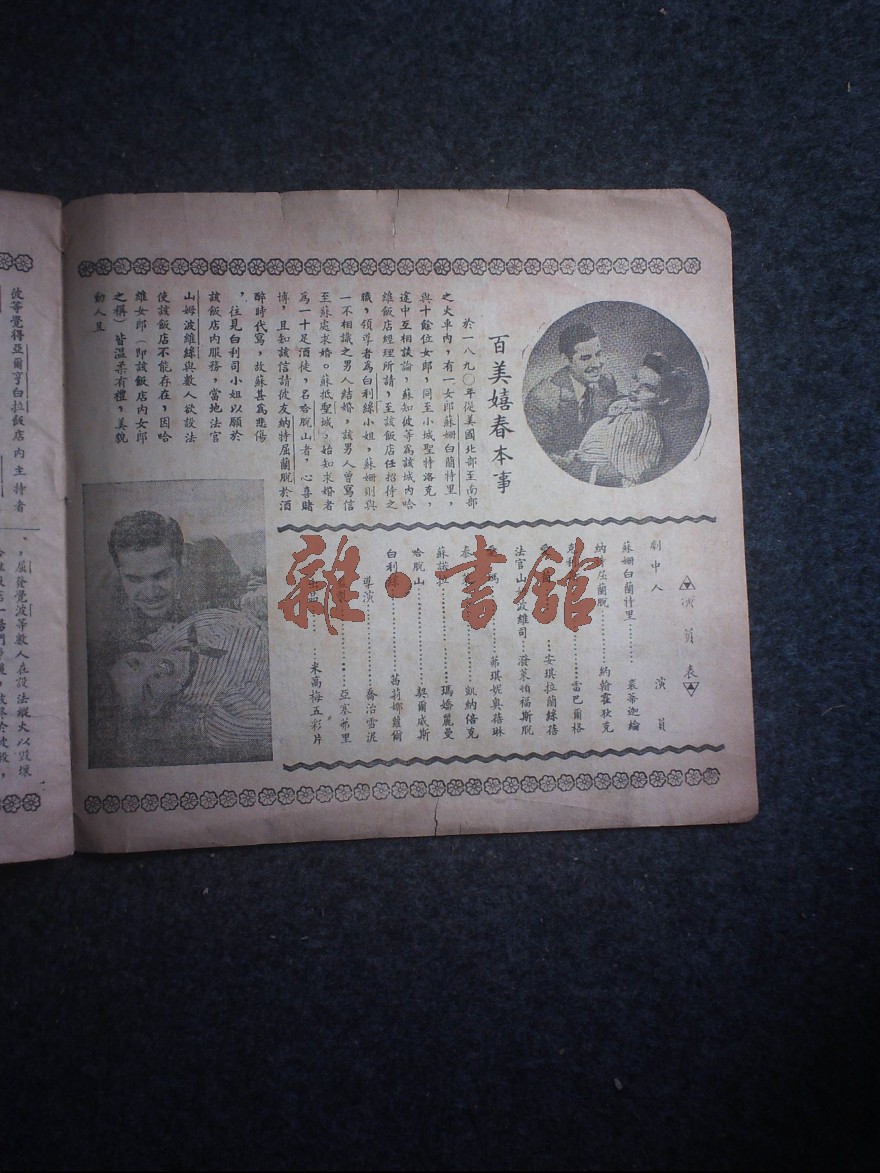 百美嬉春本事
於一八九〇年從美國北部至南部
之火車內，有一女郎蘇姍白蘭特里，
與十餘位女郎，同至小城聖特洛克，
途中互相談論，蘇知彼等爲該城內哈
維飯店經理所請，至該飯店任招待之
職，領導者爲白利絲小姐，蘇姍則與
一不相識之男人結婚，該男人曾寫信
至蘇處求婚。蘇抵聖城，始知求婚者
爲一十足酒徒，名哈脫山者，心喜賭
博，且知該信請彼友納特屈蘭脫於酒
醉時代寫，故蘇甚爲悲傷
，往見白利司小姐以願於
該飯店內服務，當地法官
山姆波維絲與數人欲設法
使該飯店不能存在，因哈
維女郎（即該飯店內女郎
之稱）皆溫柔有禮，美貌
動人且
演員表
劇中人 演員
蘇姍白蘭特里………裘蒂迦綸
納特屈蘭脫………約翰霍狄克
雷巴爾格
安琪拉蘭絲蓓
法官山 波維司…潑萊頓福斯脫
茀琪妮奧蓓琳
泰 凱納倍克
蘇諾 瑪嬌麗曼
哈脫山………契爾威斯
白利絲………茜莉娜蘿爾
導演………喬治雪泥
亞塞弗里
米高梅五彩片
雜·書館
彼等覺得亞爾亨白拉飯店內主持者
，屈發覺波等數人在設法縱火以毀壞